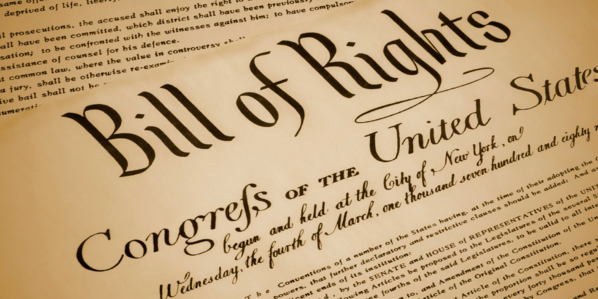 deprived of life, liberty,
prosecutions, the accused shall enjoy the right to
shall have been committed, which district shall have been previously
to be confronted with the witnesses against him; to have compulsory
assistance of counsel for his defence.
common law, where the value in controversy shall
a jury, shall be otherwise re-exami
ive bail shall not be
Bill of Rights
Congreſs OF THE United States
begun and held at the City of New York, on
Wednesday, the fourth of March, one thousand seven hundred and eighty
Conventions of a number of the States having, at the time of their adopting the
powers, that further declaratory and restrictive clauses should be added: And
ends of its institution:
by the SENATE and HOUSE of REPRESENTATIVES of the
Articles be proposed to the Legislatures of the several
fourths of the said Legislatures, to be valid to all
to, and Amendment of the Constitution of the
Article of the Original Constitution.